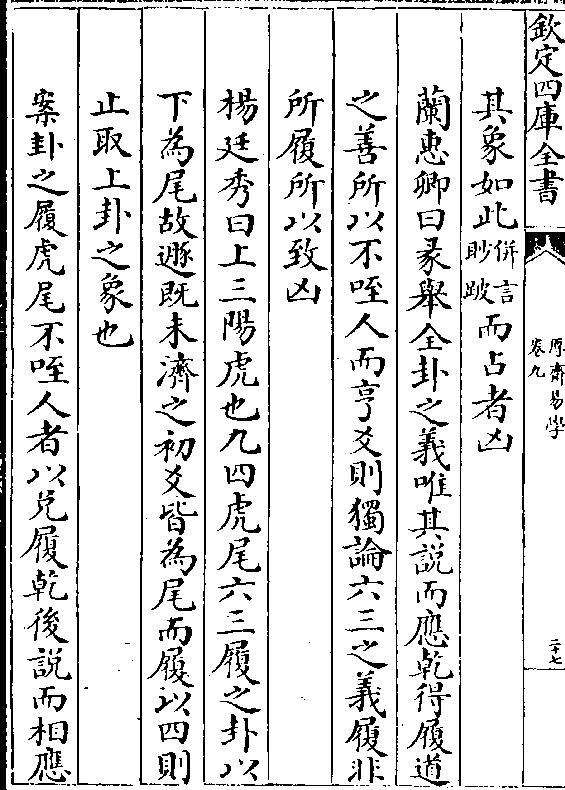 欽定四庫全書
厚齋易學
卷九
二十七
其象如此併言眇跛而占者凶
蘭惠卿曰彖舉全卦之義唯其說而應乾得履道
之善所以不咥人而亨爻則獨論六三之義履非
所履所以致凶
楊廷秀曰上三陽虎也九四虎尾六三履之卦以
下為尾故遯既未濟之初爻皆為尾而履以四則
止取上卦之象也
案卦之履虎尾不咥人者以兌履乾後說而相應